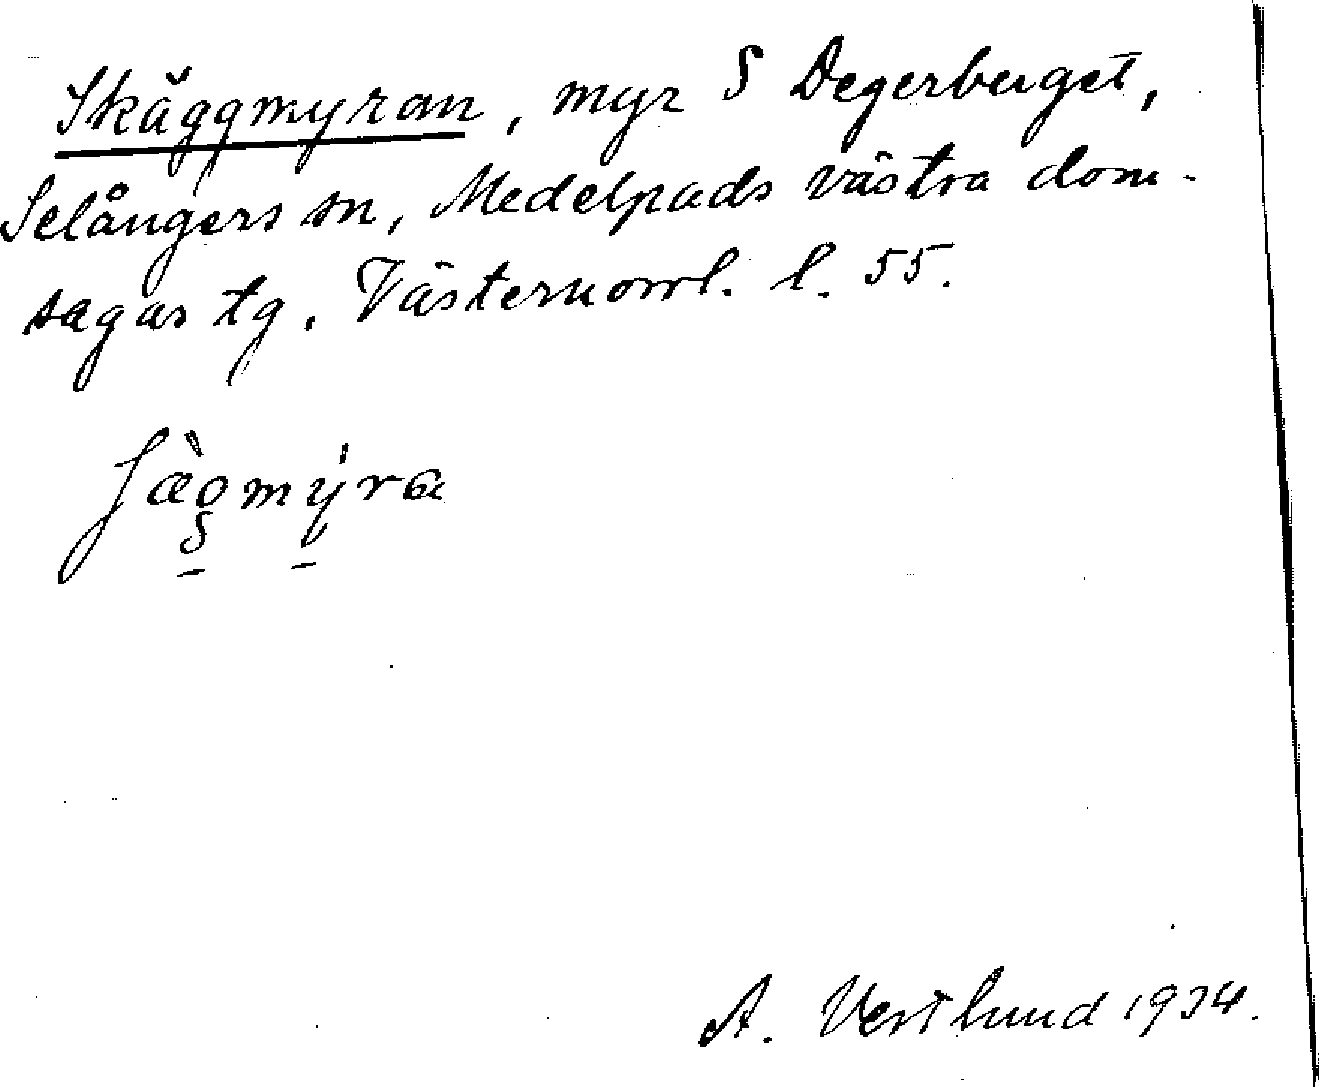 Skäggmyran, myr S Degerberget,
Selångers sn, Medelpads västra dom-
sagas tg. Västernorrl. l. 55.
ʃæ̀gmýra
A. Vestlund 1934.